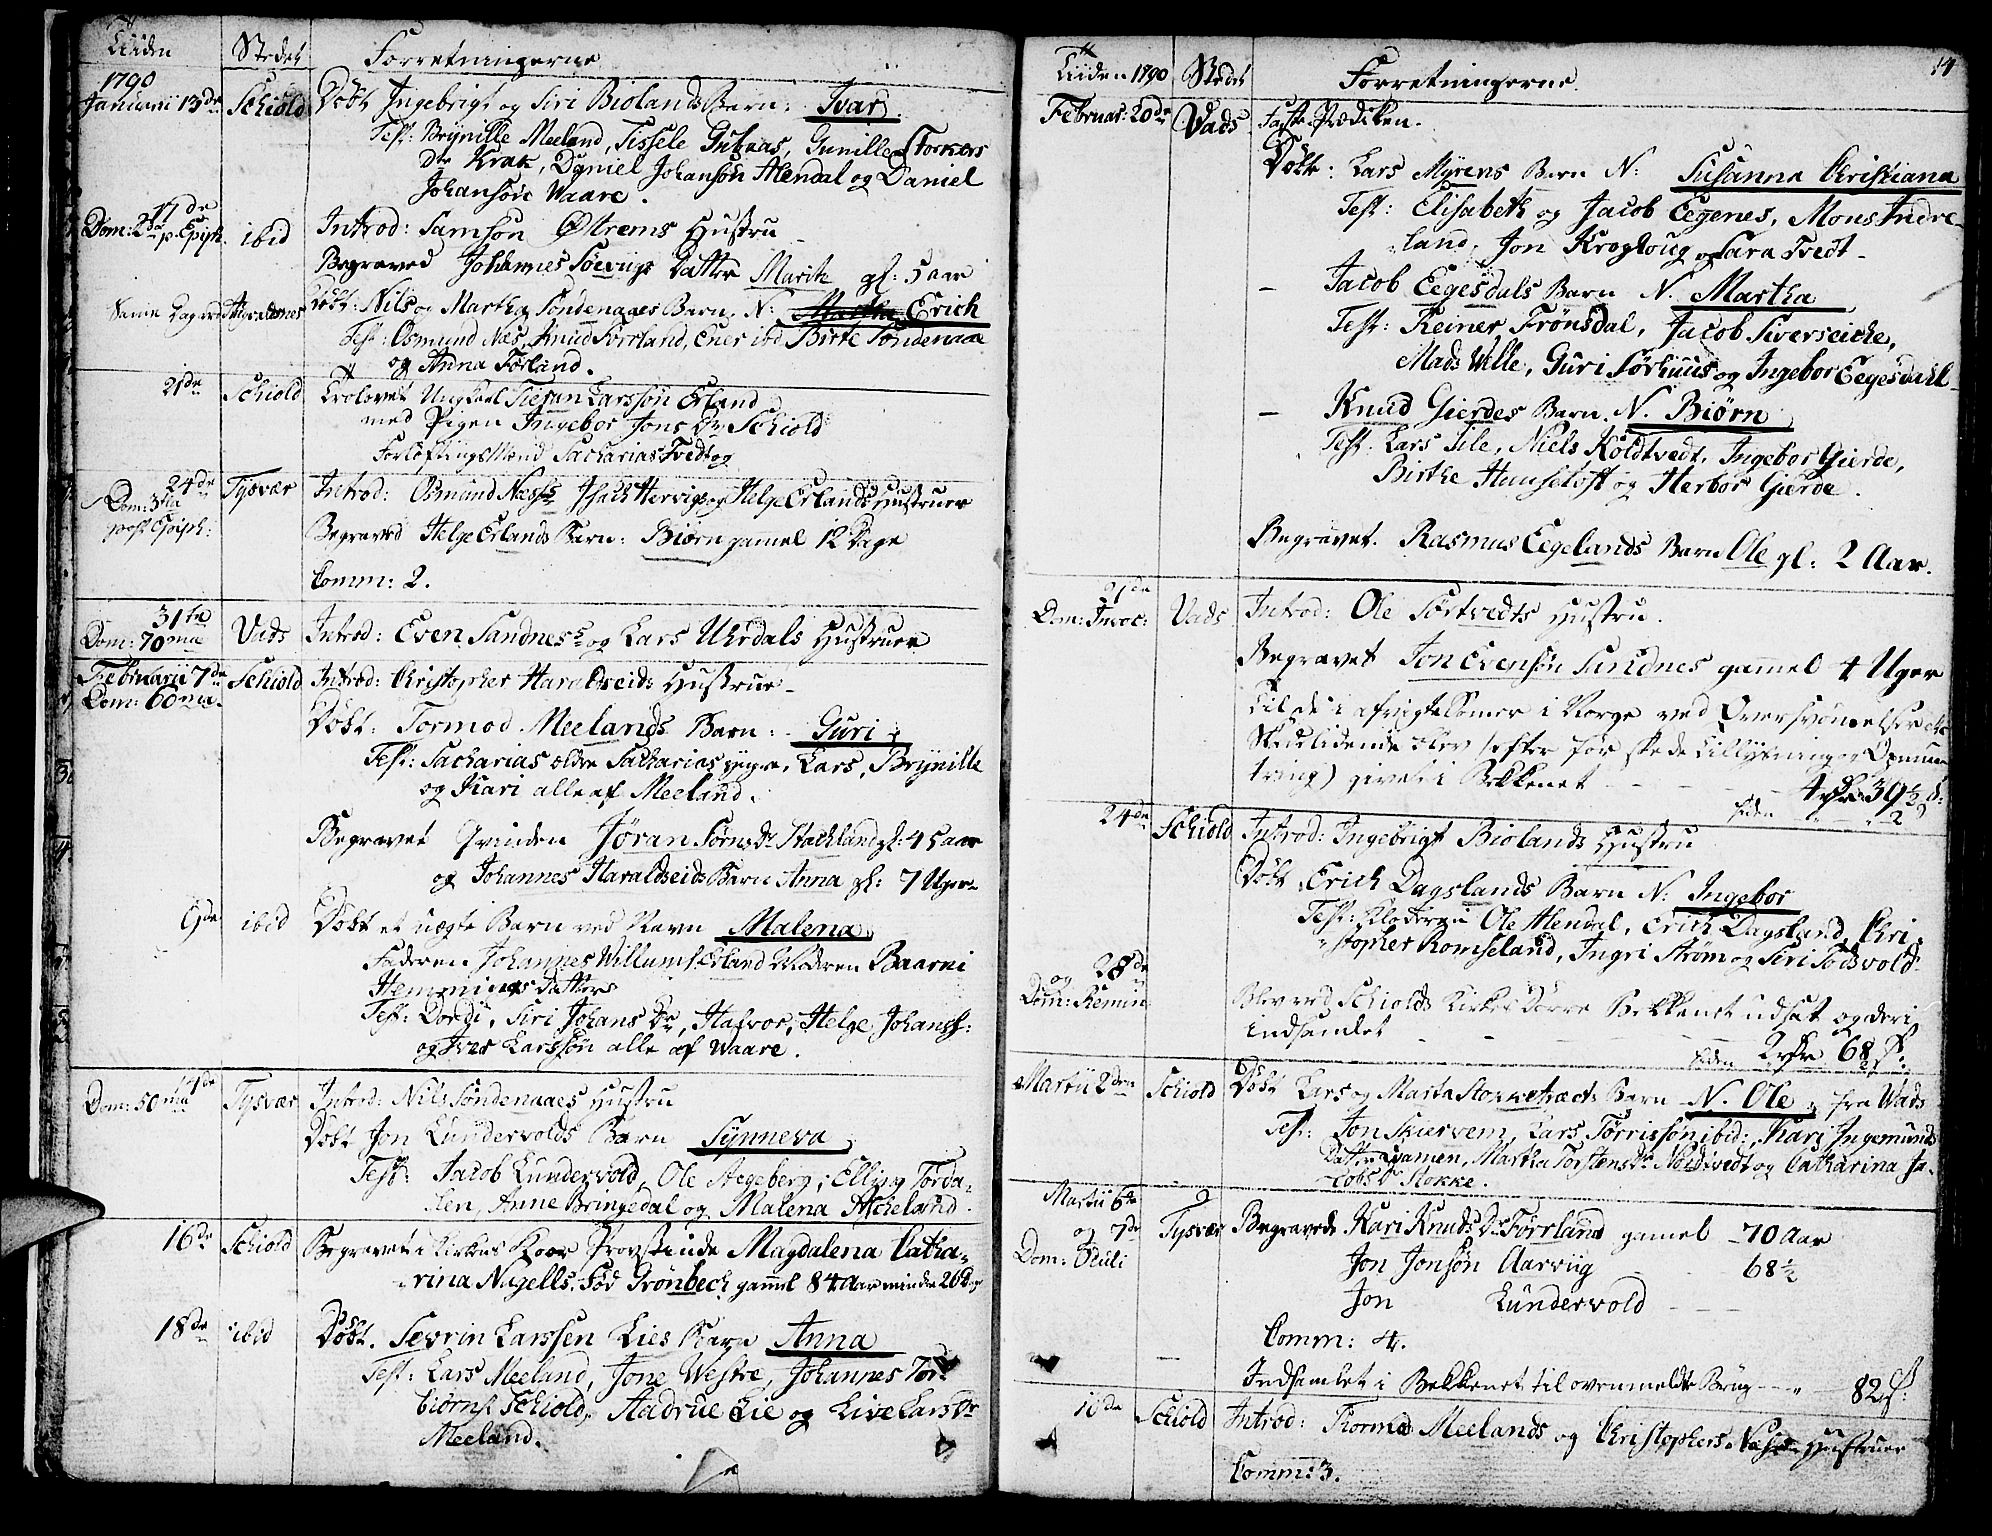 Tiiden Stedet Forretningerne
1790
Januarii 13de Schiold Døbt Ingebrigt og Siri Biolands Barn: Ivar.
Test: Brynille Meeland, Sissele Gutaas, Gunille Storkers
Dr Krak, Daniel Johansøn Alendal og Daniel
Johansøn Waare.
17de
Dom: 2da p. Epiph. ibid Introd: Samson Østrems Hustru
Begraved Johannes Søeviigs Datter Marite gl: 5 aar
Samme Dag ved Døbt: Nils og Martha Søndenaaes Barn. N: Martha Erich
Test: Osmund Næs, Knud Førrland, Ener ibd Birte Søndenaae
og Anna Førland.
21de Schiold Trolovet Ungkarl Stefan Larssøn Erland
med Pigen Ingebor Jons Dr Schiold
Forløftnings Mænd Sacharias Tvedt og
24de Tysvær Introd: Osmund Næss's Isach Hervigs og Helge Erlands Hustruer
Dom: 3tia
post Epiph: Begraved Helge Erlands Barn: Biørn gamel 12 Dage
Comm: 2.
31te
Dom: 70ma Vads Introd: Even Sandnes's og Lars Uhrdals Hustruer
Februarii 7de Schiold Introd: Christopher Haraldseids Hustrue
Dom: 60ma.
Døbt: Tormod Meelands Barn: Guri
Test: Sacharias ældre Sacharias yngre, Lars, Brynille
og Kari alle af Meeland.
Begravet Qvinden Jøran Sørens Dr Stachland gl: 45 aar
og Johannes Haraldseids Barn Anna gl: 7 Uger
9de ibid Døbt et uægte Barn ved Navn Malena
Faderen Johannes Willums. Erland Moderen Baarni
Hemmings Datter
Test: Dordi, Siri Johans Dr, Hafvor, Helge Johanss:
og Iver Larssøn alle af Waare.
14de
Dom: 50ma Tysvær Introd: Nils Søndenaaes Hustru
Døbt Jon Lundervolds Barn Synneva
Test: Jacob Lundervold, Ole Aegeberg, Elling Førda-
len, Anne Bringedal og Malena Ascheland.
16de Schiold Begravet i Kirkens Koor Provstinde Magdalena Catha-
rina Nagells. Fød Grønbech gammel 84 Aar mindre 26 Dage
18de ibid Døbt. Sevrin Larssen Lies Barn Anna
Test: Lars Meeland, Jone Westre, Johannes Tor-
biørns. Schiold, Aadrue Lie og Live Lars Dr
Meeland.
14
Tiiden 1790 Stedet Forretningerne.
Februar: 20de Vads Faste Prædiken.
Døbt: Lars Myrens Barn N: Susanna Christiana
Test: Elisabeth og Jacob Eegenes, Mons Indre-
land, Jon Kroghoug og Sara Tvedt
- Jacob Eegesdals Barn N. Martha
Test: Reiner Frønsdal, Jacob Siverseiche,
Mads Wlle, Guri Sørhuus og Ingebor Eegesdahl
- Knud Gierdes Barn. N. Biørn
Test: Lars Tile, Niels Koldtvedt, Ingebor Gierde,
Birthe Hunsetoft og Herbor Gierde.
Begravet. Rasmus Eegelands Barn Ole gl: 2 Aar.
21de
Dom: Invoc: Vads Introd: Ole Sørtvedts Hustru.
Begravet Jon Evensøn Sundnes gammel 4 Uger
Til de i afvigte Somer i Norge ved Oversvømelser etc
Skadelidende blev (efter før skede Tillysning og Opmun-
tring) givet i Bekkenet 4 rdr 39½ s:
siden 2
24de Schiold Introd: Ingebrigt Biolands Hustru
Døbt Erich Dagslands Barn N: Ingebor
Test: Klokeren Ole Alendal, Erich Dagsland, Chri-
stopher Romseland, Ingri Strøm og Siri Todsvold.
og 28de
Dom: Remin: Blev ved Schiolds Kirke Dørre Bekkenet udsat og deri
indsamlet 2 rdr 68 s:
siden
Martii 2den Schiold Døbt Lars og Marta Stoksetræets Barn N. Ole, fra Vads
Test: Jon Skiervem, Lars Tørrissøn ibid:, Kari Ingemunds
Datter Qvamen, Martha Torstens Dr Noldtvedt og Catharina Ja-
cobs Dr Stokke.
Martii 6te
og 7de Tysvær Begravede Kari Knuds Dr Førrland gamel 70 Aar
Dom: Oculi Jon Jonsøn Aarviig 68½
Jon Lundervold
Comm: 4.
Indsamlet i Bekkenet til ovenmeldte Brug 82 s:
10de Schiold Introd: Thormod Meelands og Christophers Næs Hustruer
Comm: 3.